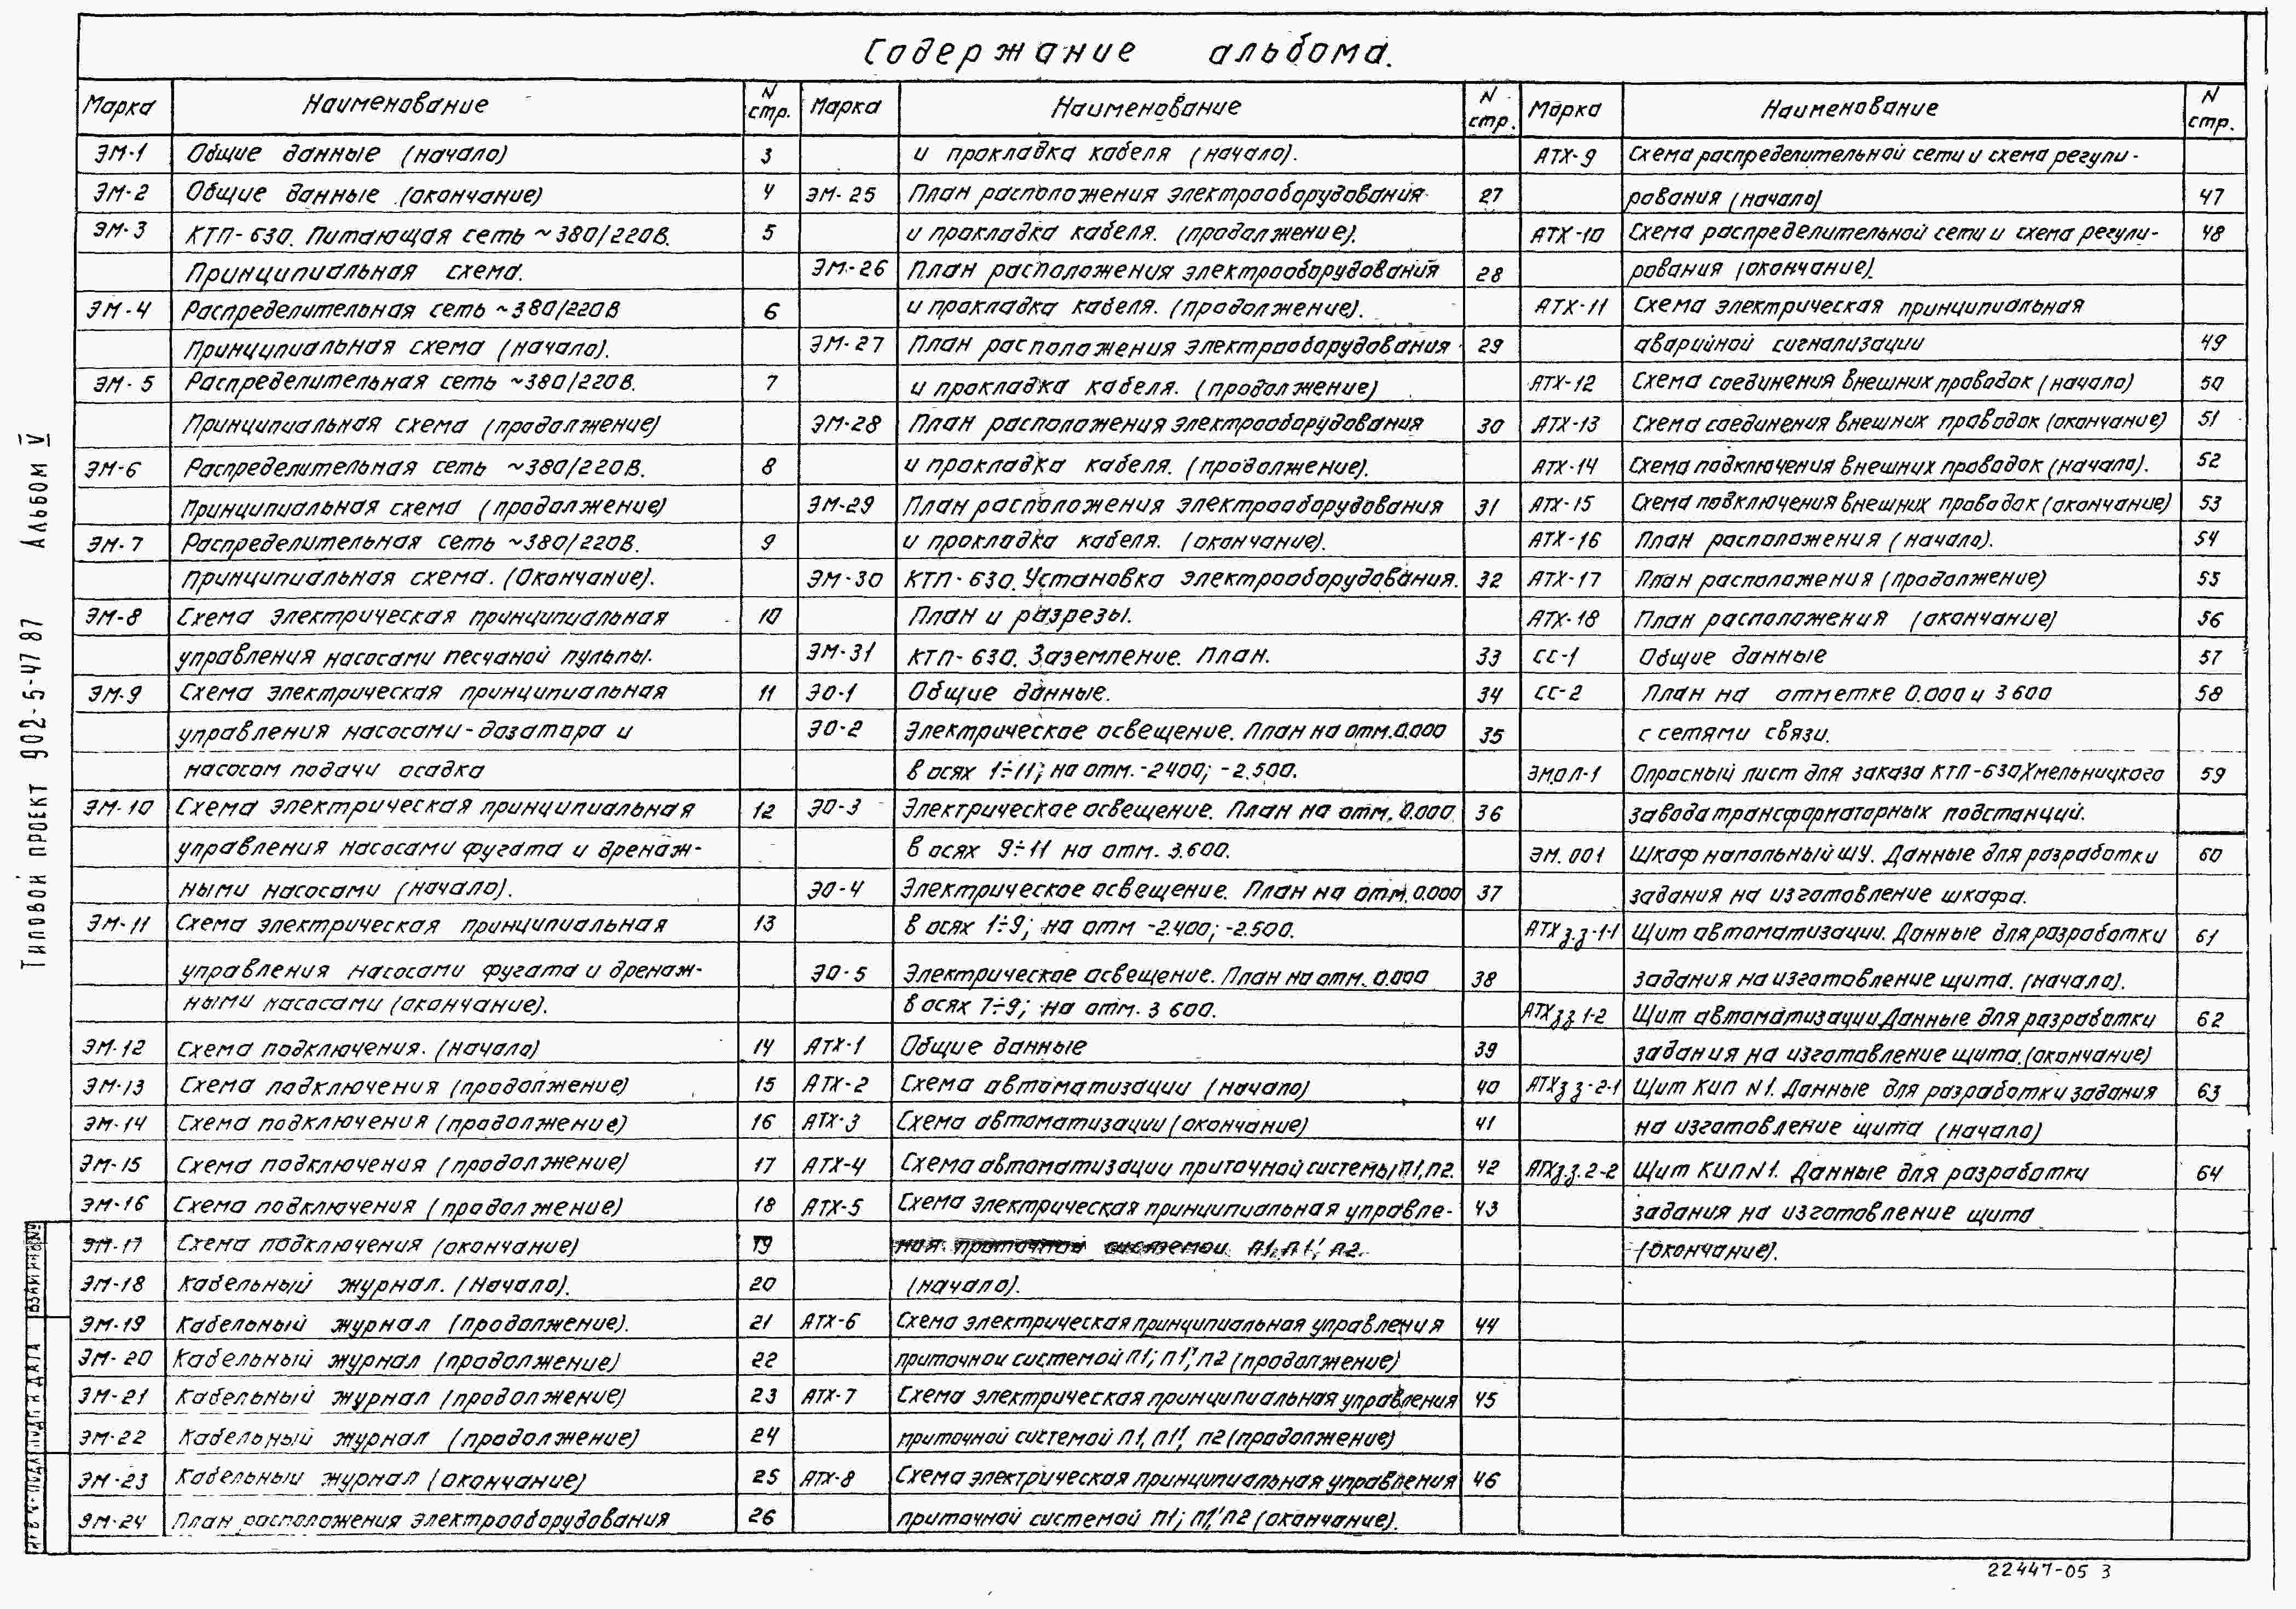 Содержание альбома.
Марка Наименование N стр.
ЭМ-1 Общие данные (начало) 3
ЭМ-2 Общие данные (окончание) 4
ЭМ-3 КТП-630. Питающая сеть ~380/220В. 5
Принципиальная схема.
ЭМ-4 Распределительная сеть ~380/220В 6
Принципиальная схема (начало).
ЭМ-5 Распределительная сеть ~380/220В. 7
Принципиальная схема (продолжение)
ЭМ-6 Распределительная сеть ~380/220В. 8
Принципиальная схема (продолжение)
ЭМ-7 Распределительная сеть ~380/220В. 9
Принципиальная схема. (Окончание).
ЭМ-8 Схема электрическая принципиальная 10
управления насосами песчаной пульпы.
ЭМ-9 Схема электрическая принципиальная 11
управления насосами-дозатора и
насосом подачи осадка
ЭМ-10 Схема электрическая принципиальная 12
управления насосами фугата и дренаж-
ными насосами (начало).
ЭМ-11 Схема электрическая принципиальная 13
управления насосами фугата и дренаж-
ными насосами (окончание).
ЭМ-12 Схема подключения. (начало) 14
ЭМ-13 Схема подключения (продолжение) 15
ЭМ-14 Схема подключения (продолжение) 16
ЭМ-15 Схема подключения (продолжение) 17
ЭМ-16 Схема подключения (продолжение) 18
ЭМ-17 Схема подключения (окончание) 19
ЭМ-18 Кабельный журнал. (Начало). 20
ЭМ-19 Кабельный журнал (продолжение). 21
ЭМ-20 Кабельный журнал (продолжение) 22
ЭМ-21 Кабельный журнал (продолжение) 23
ЭМ-22 Кабельный журнал (продолжение) 24
ЭМ-23 Кабельный журнал (окончание) 25
ЭМ-24 План расположения электрооборудования 26
Марка Наименование N стр.
и прокладка кабеля (начало).
ЭМ-25 План расположения электрооборудования 27
и прокладка кабеля. (продолжение).
ЭМ-26 План расположения электрооборудования 28
и прокладка кабеля. (продолжение).
ЭМ-27 План расположения электрооборудования 29
и прокладка кабеля. (продолжение)
ЭМ-28 План расположения электрооборудования 30
и прокладка кабеля. (продолжение).
ЭМ-29 План расположения электрооборудования 31
и прокладка кабеля. (окончание).
ЭМ-30 КТП-630. Установка электрооборудования. 32
План и разрезы.
ЭМ-31 КТП-630. Заземление. План. 33
ЭО-1 Общие данные. 34
ЭО-2 Электрическое освещение. План на отм. 0.000 35
в осях 1÷11; на отм. -2400; -2.500.
ЭО-3 Электрическое освещение. План на отм. 0.000 36
в осях 9÷11 на отм. 3.600.
ЭО-4 Электрическое освещение. План на отм. 0.000 37
в осях 1÷9; на отм -2.400; -2.500.
ЭО-5 Электрическое освещение. План на отм. 0.000 38
в осях 7÷9; на отм. 3 600.
АТХ-1 Общие данные 39
АТХ-2 Схема автоматизации (начало) 40
АТХ-3 Схема автоматизации (окончание) 41
АТХ-4 Схема автоматизации приточной системы П1, П2. 42
АТХ-5 Схема электрическая принципиальная управле- 43
ния приточной системой П1, П1', П2.
(начало).
АТХ-6 Схема электрическая принципиальная управления 44
приточной системой П1; П1', П2 (продолжение)
АТХ-7 Схема электрическая принципиальная управления 45
приточной системой П1, П1', П2 (продолжение)
АТХ-8 Схема электрическая принципиальная управления 46
приточной системой П1; П1', П2 (окончание).
Марка Наименование N стр.
АТХ-9 Схема распределительной сети и схема регули-
рования (начало) 47
АТХ-10 Схема распределительной сети и схема регули- 48
рования (окончание).
АТХ-11 Схема электрическая принципиальная
аварийной сигнализации 49
АТХ-12 Схема соединения внешних проводок (начало) 50
АТХ-13 Схема соединения внешних проводок (окончание) 51
АТХ-14 Схема подключения внешних проводок (начало). 52
АТХ-15 Схема подключения внешних проводок (окончание) 53
АТХ-16 План расположения (начало). 54
АТХ-17 План расположения (продолжение) 55
АТХ-18 План расположения (окончание) 56
СС-1 Общие данные 57
СС-2 План на отметке 0.000 и 3 600 58
с сетями связи.
ЭМ.ОЛ-1 Опросный лист для заказа КТП-630 Хмельницкого 59
завода трансформаторных подстанций.
ЭМ.001 Шкаф напольный ШУ. Данные для разработки 60
задания на изготовление шкафа.
АТХ з.з-1-1 Щит автоматизации. Данные для разработки 61
задания на изготовление щита. (начало).
АТХ зз 1-2 Щит автоматизации Данные для разработки 62
задания на изготовление щита. (окончание)
АТХ з з-2-1 Щит КИП N1. Данные для разработки задания 63
на изготовление щита (начало)
АТХ з.з. 2-2 Щит КИП N1. Данные для разработки 64
задания на изготовление щита
(окончание).
Типовой проект 902-5-47 87 Альбом V
22447-05 3